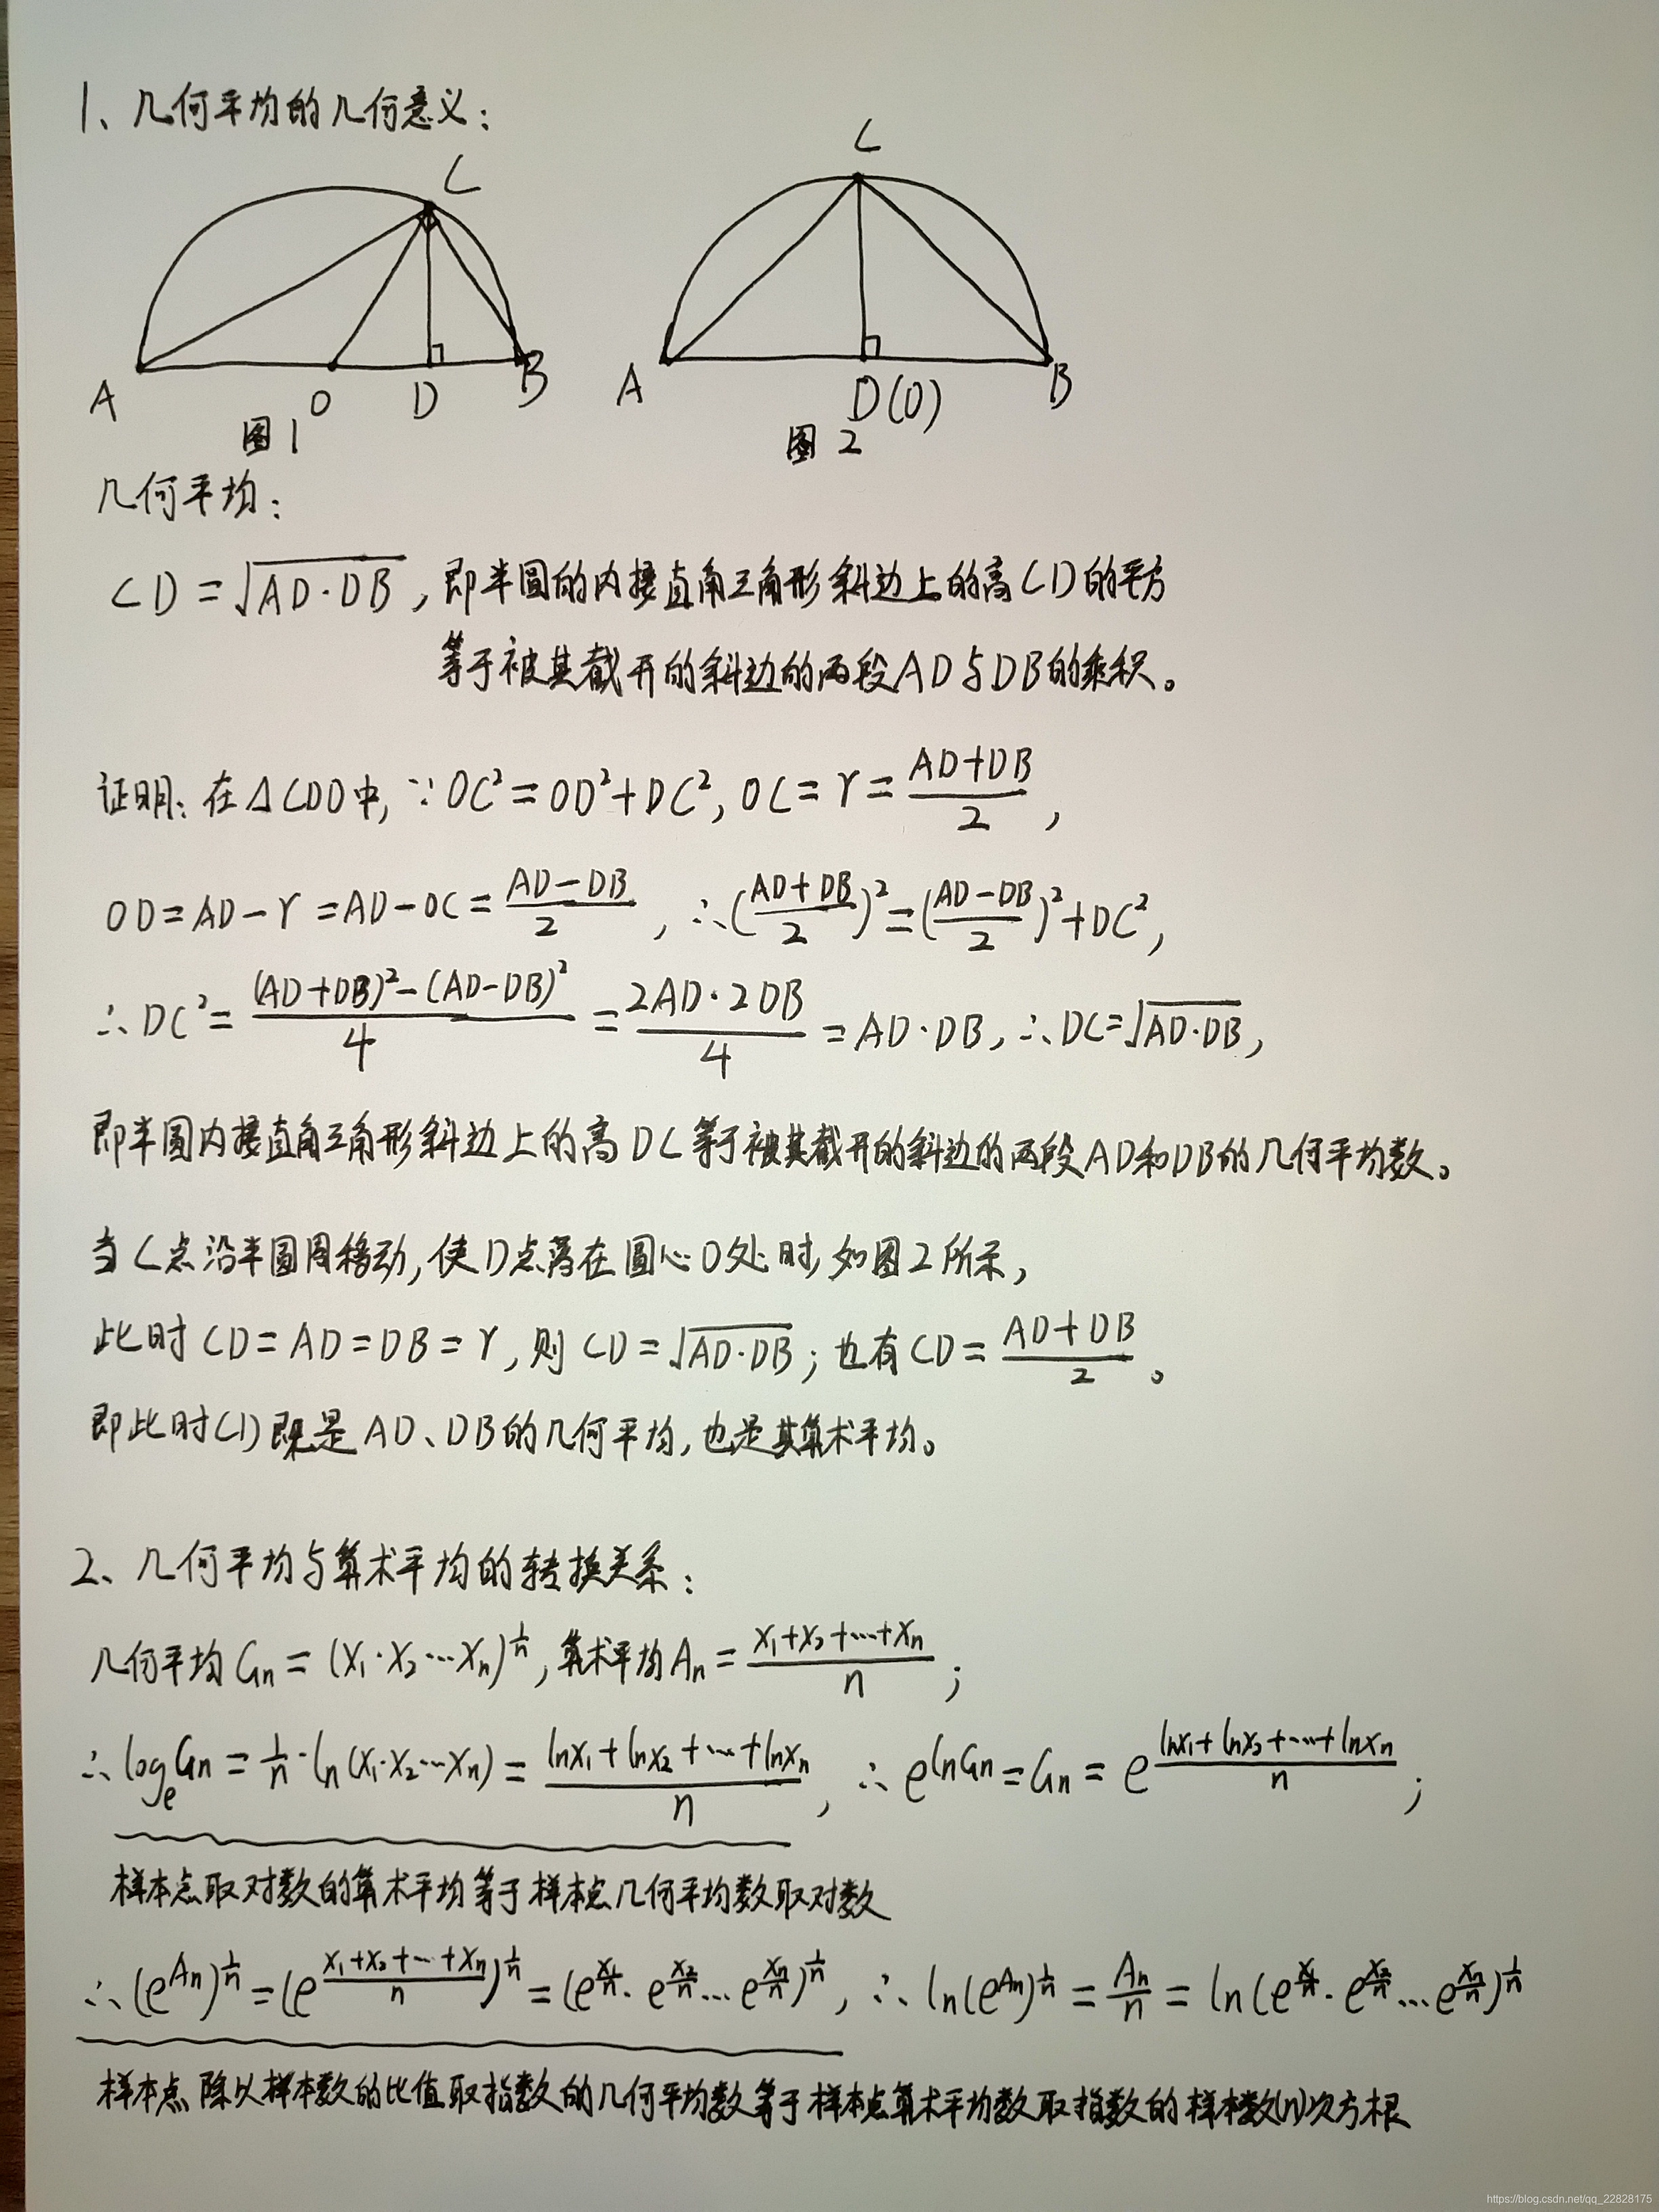 1、几何平均的几何意义:
C
C
A
O
D
B
A
D(O)
B
图1
图2
几何平均:
CD=√(AD·DB),即半圆的内接直角三角形斜边上的高CD的平方
等于被其截开的斜边的两段AD与DB的乘积。
证明:在△CDO中,∵OC²=OD²+DC²,OC=r=(AD+DB)/2,
OD=AD-r=AD-OC=(AD-DB)/2,∴((AD+DB)/2)²=((AD-DB)/2)²+DC²,
∴DC²=((AD+DB)²-(AD-DB)²)/4=(2AD·2DB)/4=AD·DB,∴DC=√(AD·DB),
即半圆内接直角三角形斜边上的高DC等于被其截开的斜边的两段AD和DB的几何平均数。
当C点沿半圆周移动,使D点落在圆心O处时,如图2所示,
此时CD=AD=DB=r,则CD=√(AD·DB);也有CD=(AD+DB)/2。
即此时CD既是AD、DB的几何平均,也是其算术平均。
2、几何平均与算术平均的转换关系:
几何平均Gn=(x₁·x₂···xn)^(1/n),算术平均An=(x₁+x₂+···+xn)/n;
∴logₑGn=1/n·ln(x₁·x₂···xn)=(lnx₁+lnx₂+···+lnxn)/n,∴e^(lnGn)=Gn=e^((lnx₁+lnx₂+···+lnxn)/n);
样本点取对数的算术平均等于样本点几何平均数取对数
∴(e^(An))^(1/n)=(e^((x₁+x₂+···+xn)/n))^(1/n)=(e^(x₁/n)·e^(x₂/n)···e^(xn/n))^(1/n),∴ln(e^(An))^(1/n)=An/n=ln(e^(x₁/n)·e^(x₂/n)···e^(xn/n))^(1/n)
样本点除以样本数的比值取指数的几何平均数等于样本点算术平均数取指数的样本数(n)次方根
https://blog.csdn.net/qq_22828175